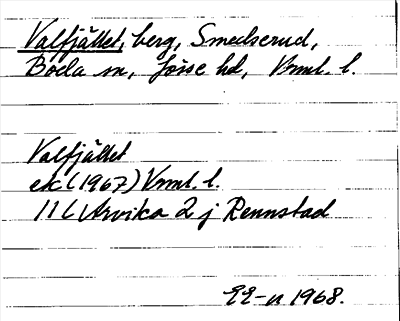 Valfjället, berg, Smedserud,
Boda sn, Jösse hd, Vrml. l.
Valfjället
ek (1967) Vrml. l.
11 C Arvika 2 j Rennstad
1968.